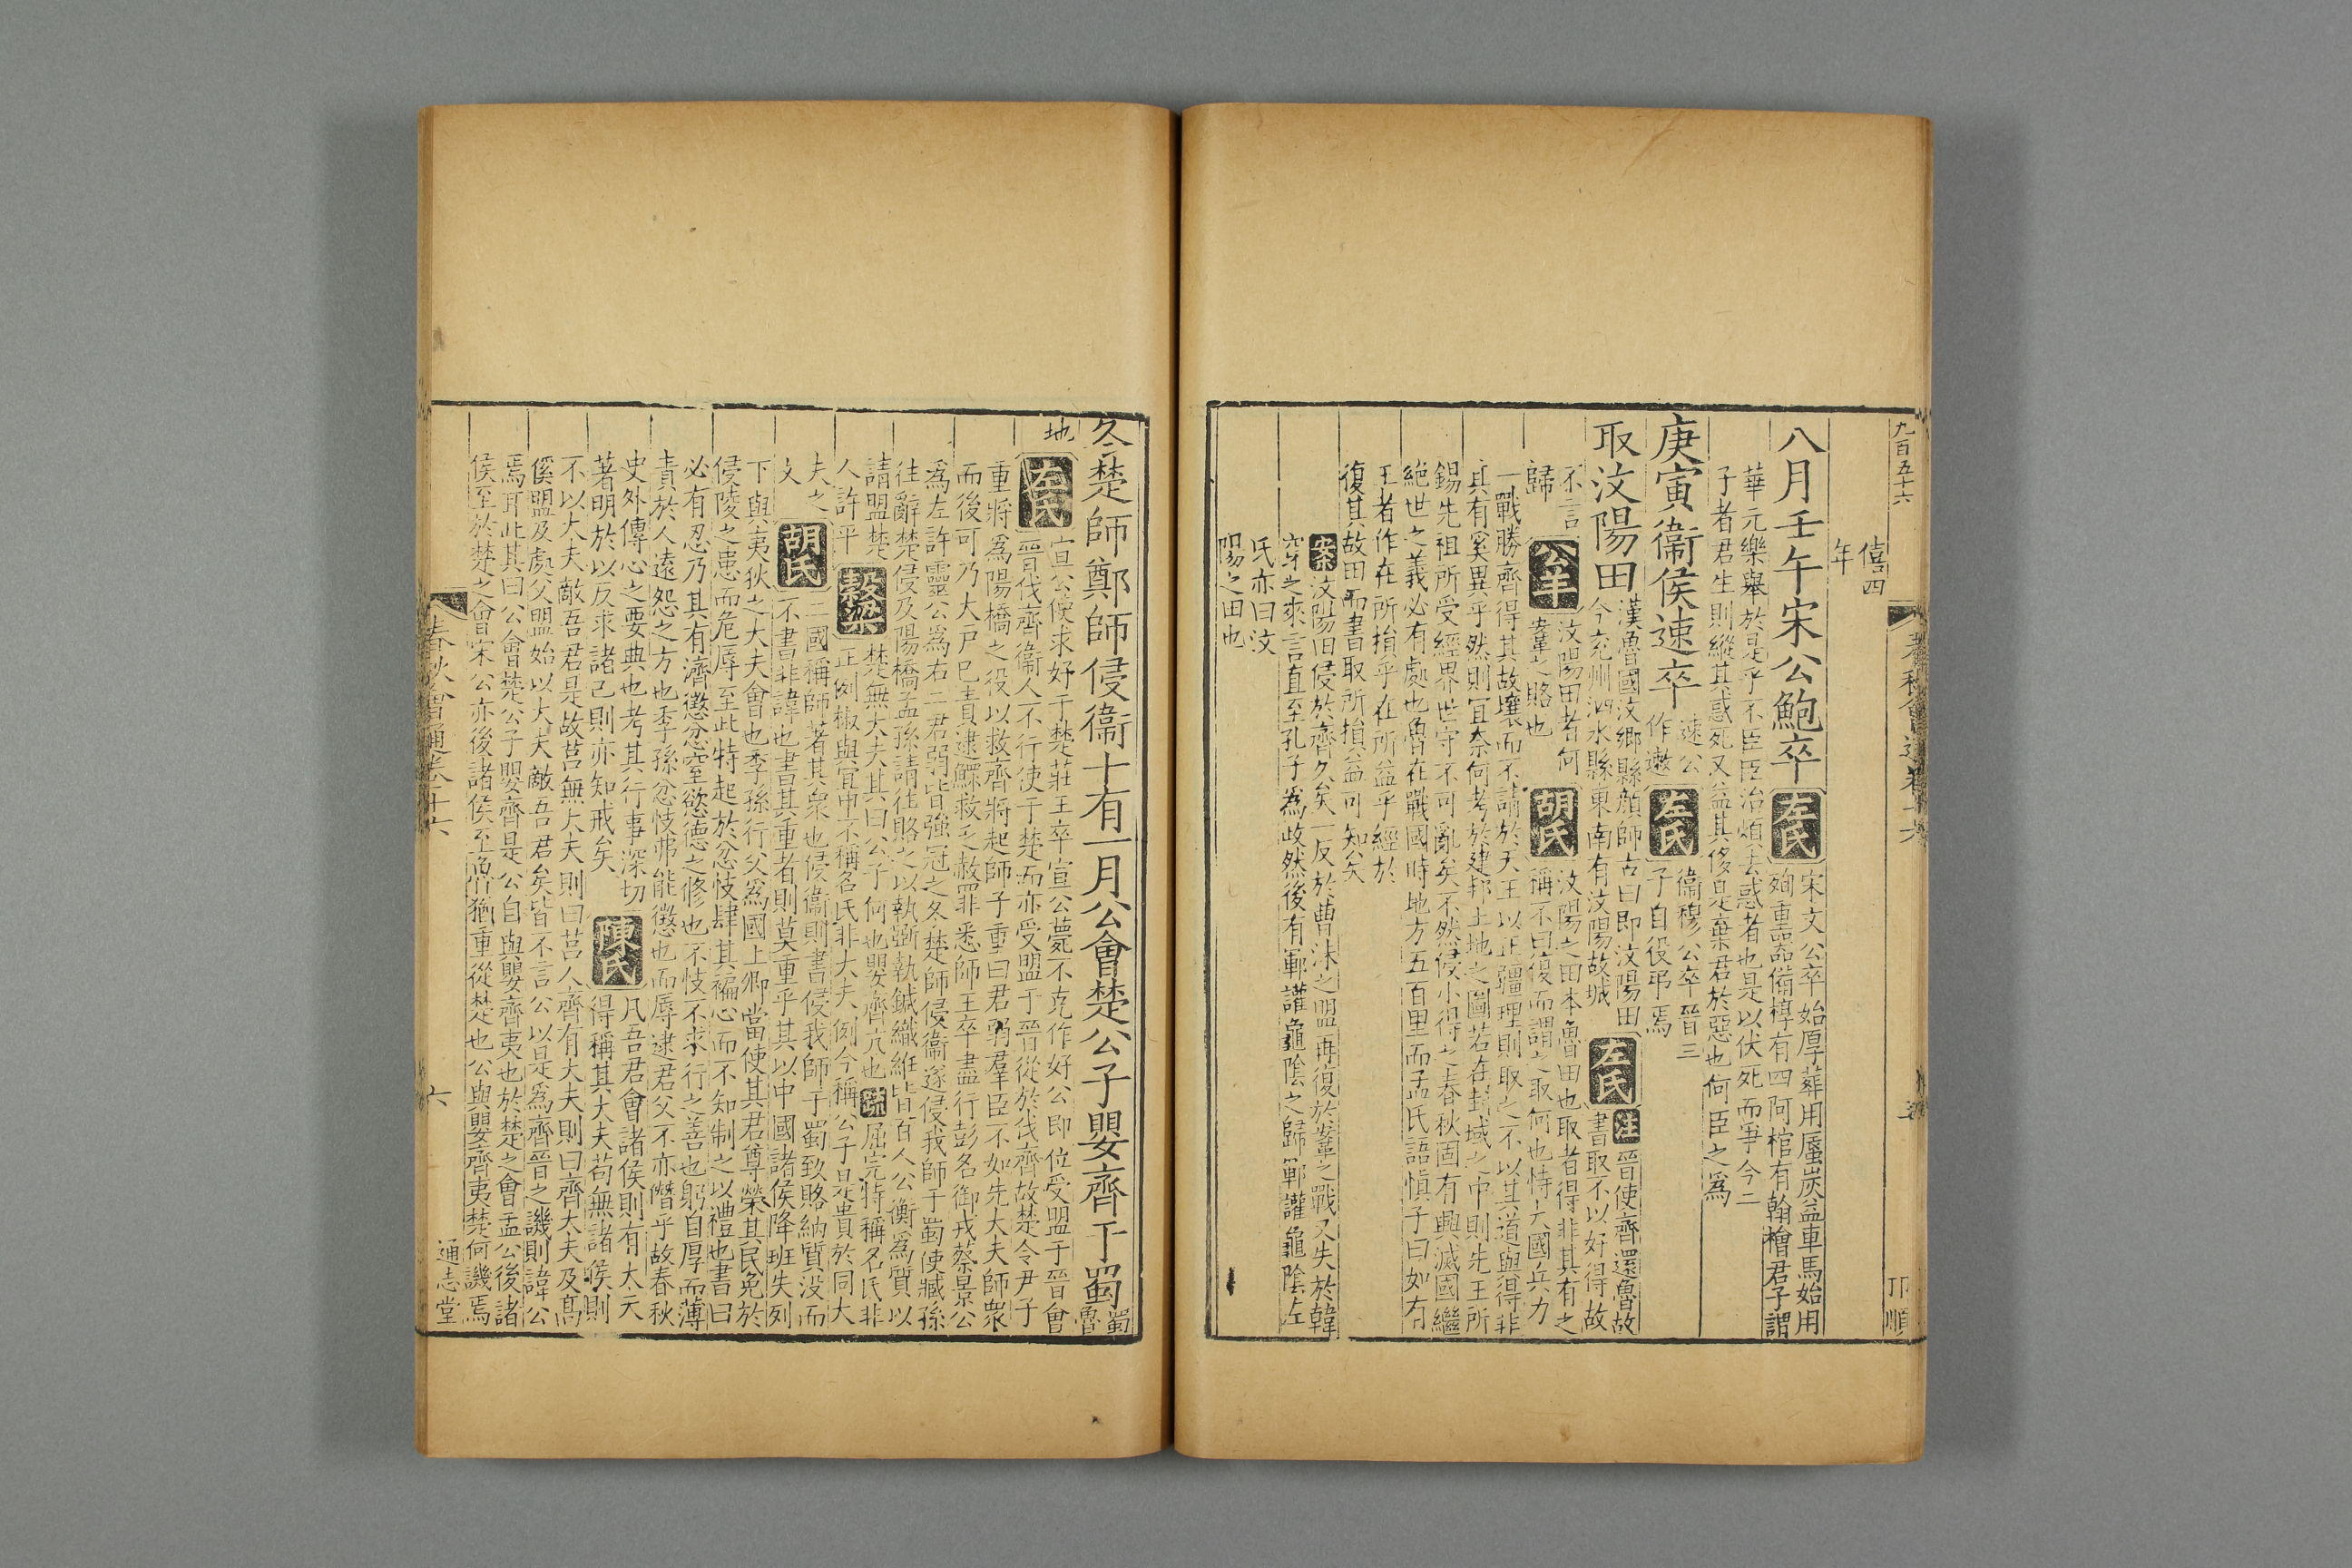 九百五十六
僖四
年
八月壬午宋公鮑卒
左氏
宋文公卒始厚葬用蜃炭益車馬始用
殉重器備椁有四阿棺有翰檜君子謂
華元樂舉於是乎不臣臣治煩去惑者也是以伏死而爭今二
子者君生則縱其惑死又益其侈是棄君於惡也何臣之爲
庚寅衞侯速卒
速公
作遬
左氏
衞穆公卒晉三
子自役弔焉
取汶陽田
漢魯國汶鄉縣顔師古曰即汶陽田
今兖州泗水縣東南有汶陽故城
左氏
注
晉使齊還魯故
書取不以好得故
不言
歸
公羊
汶陽田者何
鞌之賂也
胡氏
汶陽之田本魯田也取者得非其有之
稱不曰復而謂之取何也恃大國兵力
一戰勝齊得其故壤而不請於天王以正疆理則取之不以其道與得非
其有奚異乎然則宜柰何考於建邦土地之圖若在封域之中則先王所
錫先祖所受經界世守不可亂矣不然侵小得之春秋固有興滅國繼
絶世之義必有處也魯在戰國時地方五百里而孟氏語慎子曰如有
王者作在所損乎在所益乎經於
復其故田而書取所損益可知矣
案
汶陽田侵於齊久矣一反於曹沫之盟再復於鞌之戰又失於韓
穿之來言直至孔子爲政然後有鄆讙龜陰之歸鄆讙龜陰左
氏亦曰汶
陽之田也
冬楚師鄭師侵衞十有一月公會楚公子嬰齊于蜀
蜀
魯
地
左氏
宣公使求好于楚莊王卒宣公薨不克作好公即位受盟于晉會
晉伐齊衞人不行使于楚而亦受盟于晉從於伐齊故楚令尹子
重將爲陽橋之役以救齊將起師子重曰君弱羣臣不如先大夫師衆
而後可乃大戶已責逮鰥救乏赦罪悉師王卒盡行彭名御戎蔡景公
爲左許靈公爲右二君弱皆強冠之冬楚師侵衞遂侵我師于蜀使臧孫
往辭楚侵及陽橋孟孫請往賂之以執斲執鍼織紝皆百人公衡爲質以
請盟楚
人許平
穀梁
楚無大夫其曰公子何也嬰齊亢也
疏
屈完特稱名氏非
正例椒與宜申不稱名氏非大夫例今稱公子是貴於同大
夫之
文
胡氏
二國稱師著其衆也侵衞則書侵我師于蜀致賂納質没而
不書非諱也書其重者則莫重乎其以中國諸侯降班失列
下與夷狄之大夫會也季孫行父爲國上卿當使其君尊榮其民免於
侵陵之患而危辱至此特起於忿忮肆其褊心而不知制之以禮也書曰
必有忍乃其有濟懲忿窒慾德之修也不忮不求行之善也躬自厚而薄
責於人遠怨之方也季孫忿忮弗能懲也而辱逮君父不亦僭乎故春秋
史外傳心之要典也考其行事深切
著明於以反求諸己則亦知戒矣
陳氏
凡吾君會諸侯則有大夫
得稱其大夫苟無諸侯則
不以大夫敵吾君是故莒無大夫則曰莒人齊有大夫則曰齊大夫及髙
傒盟及處父盟始以大夫敵吾君矣皆不言公以是爲齊晉之譏則諱公
焉耳此其曰公會楚公子嬰齊是公自與嬰齊夷也於楚之會盂公後諸
侯至於楚之會宋公亦後諸侯至魯猶重從楚也公與嬰齊夷楚何譏焉
春秋會通卷十六
六
通志堂